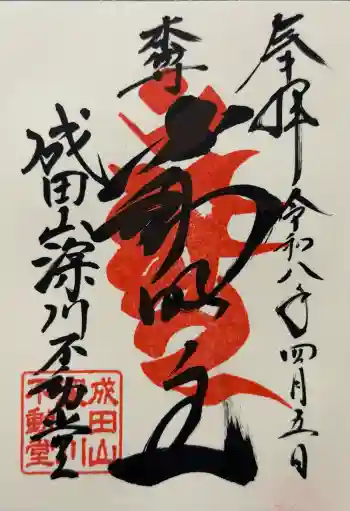 奉拝
令和八年四月五日
本尊
不動明王
成田山深川不動堂
成田山
深川
不動堂